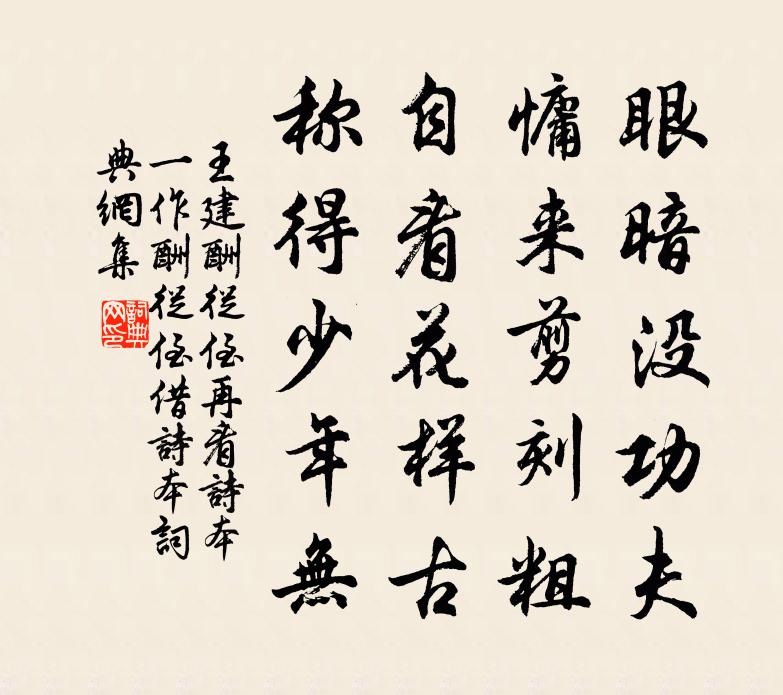 眼暗没功夫
慵来剪刻粗
自看花样古
称得少年無
王建酬從侄再看詩本
一作酬從侄借詩本詞
典網集
詞典
网印